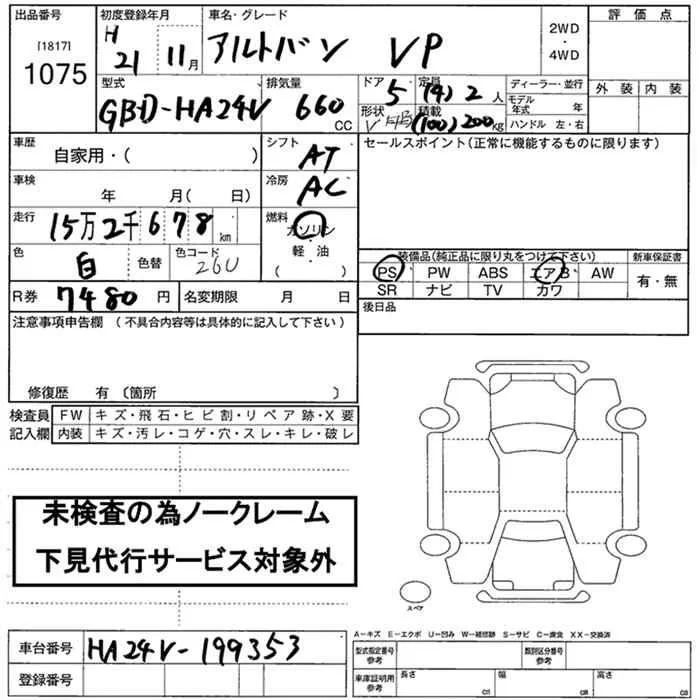 出品番号 初度登録年月 車名・グレード 評価点
[1817]
1075 H 21 11月 アルトバン VP 2WD・4WD
型式 排気量 ドア 定員 ディーラー・並行 外装 内装
GBD-HA24V 660 CC 5 (4) 2人 モデル年式 年
形状 積載 (100) 200kg ハンドル 左・右
車歴 自家用・( ) シフト AT セールスポイント(正常に機能するものに限ります)
車検 年 月( 日) 冷房 AC
走行 15万2千678km 燃料 ガソリン・軽油( )
色 白 色替 色コード 26U
装備品(純正品に限り丸をつけて下さい) 新車保証書
PS PW ABS エアB AW 有・無
SR ナビ TV カワ
R券 7480円 名変期限 月 日 後日品
注意事項申告欄 (不具合内容等は具体的に記入して下さい)
修復歴 有 〔箇所 〕
検査員 FW キズ・飛石・ヒビ割・リペア跡・X要
記入欄 内装 キズ・汚レ・コゲ・穴・スレ・キレ・破レ
未検査の為ノークレーム
下見代行サービス対象外
スペア
A−キズ E−エクボ U−凹み W−補修跡 S−サビ C−腐食 XX−交換済
車台番号 HA24V-199353 型式指定番号 参考 類別区分番号 参考
登録番号 車庫証明用 参考 長さ cm 幅 cm 高さ cm